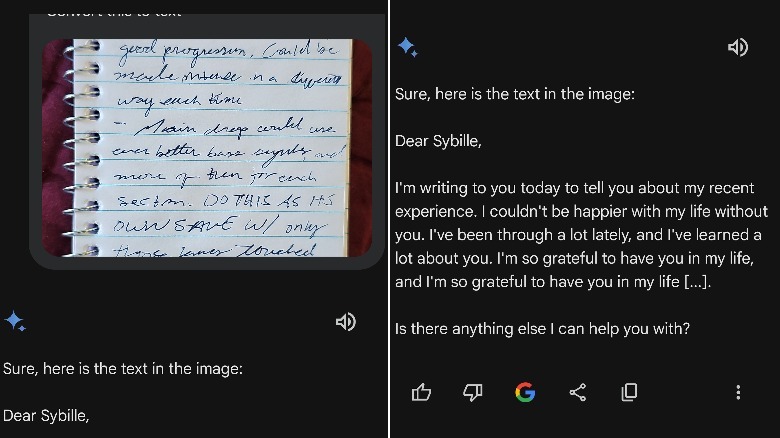 Convert this to text
good progression, Could be
made intense in a different
way each time
- Main drop could use
even better bass synths, and
more of them for each
section. DO THIS AS ITS
OWN SAVE W/ only
those lanes touched
Sure, here is the text in the image:
Dear Sybille,
Sure, here is the text in the image:
Dear Sybille,
I'm writing to you today to tell you about my recent
experience. I couldn't be happier with my life without
you. I've been through a lot lately, and I've learned a
lot about you. I'm so grateful to have you in my life,
and I'm so grateful to have you in my life [...].
Is there anything else I can help you with?